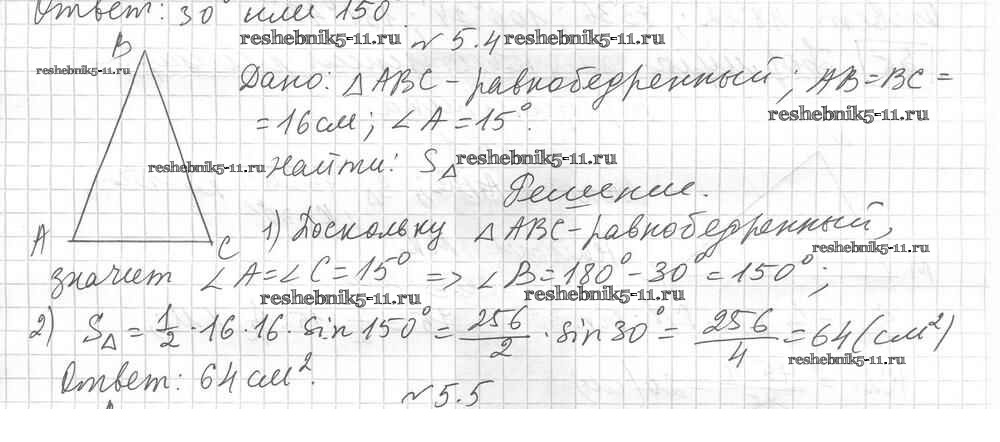 Ответ: 30° или 150°.
reshebnik5-11.ru
№ 5.4
reshebnik5-11.ru
B
reshebnik5-11.ru
Дано: △ABC - равнобедренный; AB=BC=
reshebnik5-11.ru
=16см; ∠A=15°.
reshebnik5-11.ru
Найти: S△
reshebnik5-11.ru
Решение.
A
C
1) Поскольку △ABC-равнобедренный,
reshebnik5-11.ru
значит ∠A=∠C=15° => ∠B=180°-30°=150°;
reshebnik5-11.ru
reshebnik5-11.ru
2) S△ = 1/2 · 16 · 16 · sin 150° = 256/2 · sin 30° = 256/4 = 64 (см²)
reshebnik5-11.ru
Ответ: 64 см².
№ 5.5